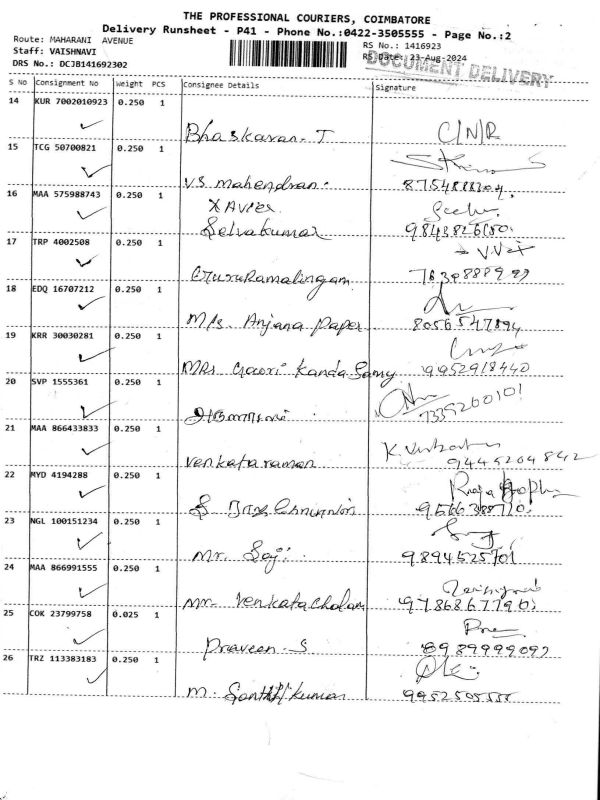 THE PROFESSIONAL COURIERS, COIMBATORE
Delivery Runsheet - P41 - Phone No.:0422-3505555 - Page No.:2
Route: MAHARANI AVENUE
Staff: VAISHNAVI
RS No.: 1416923
DRS No.: DCJB141692302
RS Date: 23-Aug-2024
DOCUMENT DELIVERY
S No Consignment No Weight PCS Consignee Details Signature
14 KUR 7002010923 0.250 1
Bhaskaran. T C/N/R
15 TCG 50700821 0.250 1
V.S. mahendran.
16 MAA 575988743 0.250 1
XAvier.
Selvakumar
17 TRP 4002508 0.250 1
GuruRamalingam
18 EDQ 16707212 0.250 1
M/s. Anjana Paper 8056547894
19 KRR 30030281 0.250 1
MRs Gowri Kanda Samy 9952918440
20 SVP 1555361 0.250 1
7335260101
21 MAA 866433833 0.250 1
venkataraman 9445204842
22 MYD 4194288 0.250 1
23 NGL 100151234 0.250 1
Mr. Saji. 9894525701
24 MAA 866991555 0.250 1
Mr. Venkatachalam
25 COK 23799758 0.025 1
Praveen. S 8989999097
26 TRZ 113383183 0.250 1
M. Santhikumar 9952505555